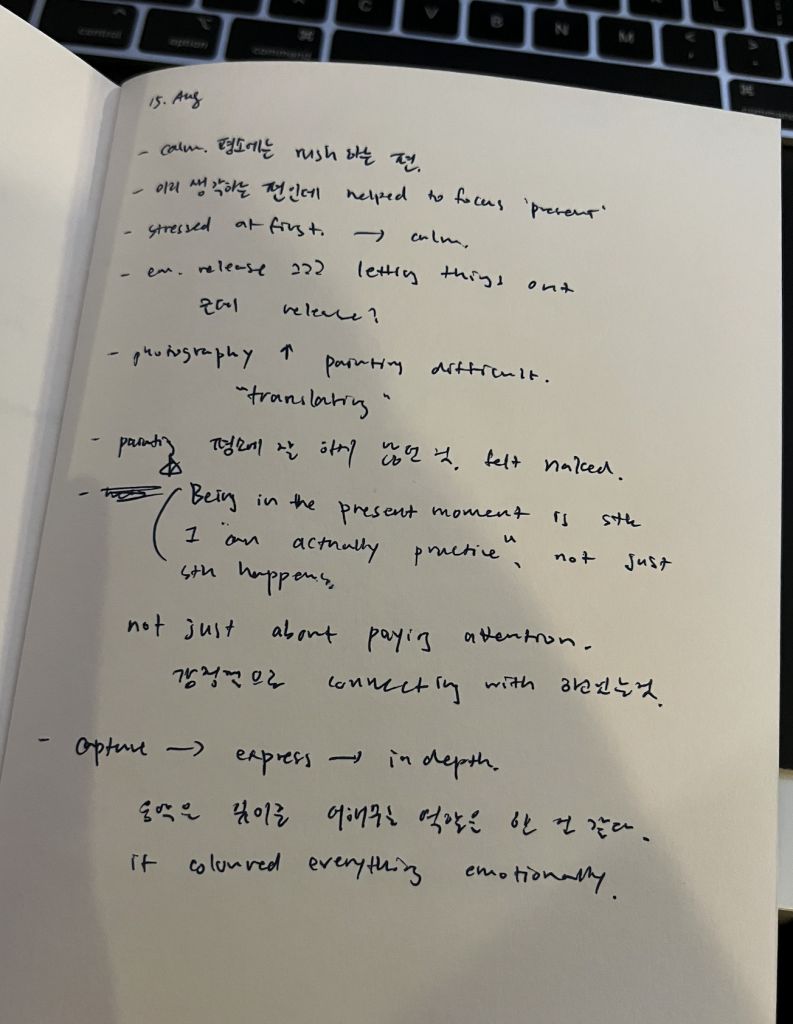 15. Aug
- calm. 평소에는 rush 하는 편.
- 미리 생각하는 편인데 helped to focus 'present'
- stressed at first. → calm.
- em. release ??? letting things out
근데 release?
- photography ↑ painting difficult.
"translating"
- painting 평소에 잘 하지 않던 것. felt naked.
- Being in the present moment is sth
I "can actually practice", not just
sth happens.
not just about paying attention.
감정적으로 connecting with 하고있는것.
- capture → express → in depth.
음악은 깊이를 더해주는 역할을 한 것 같다.
it coloured everything emotionally.